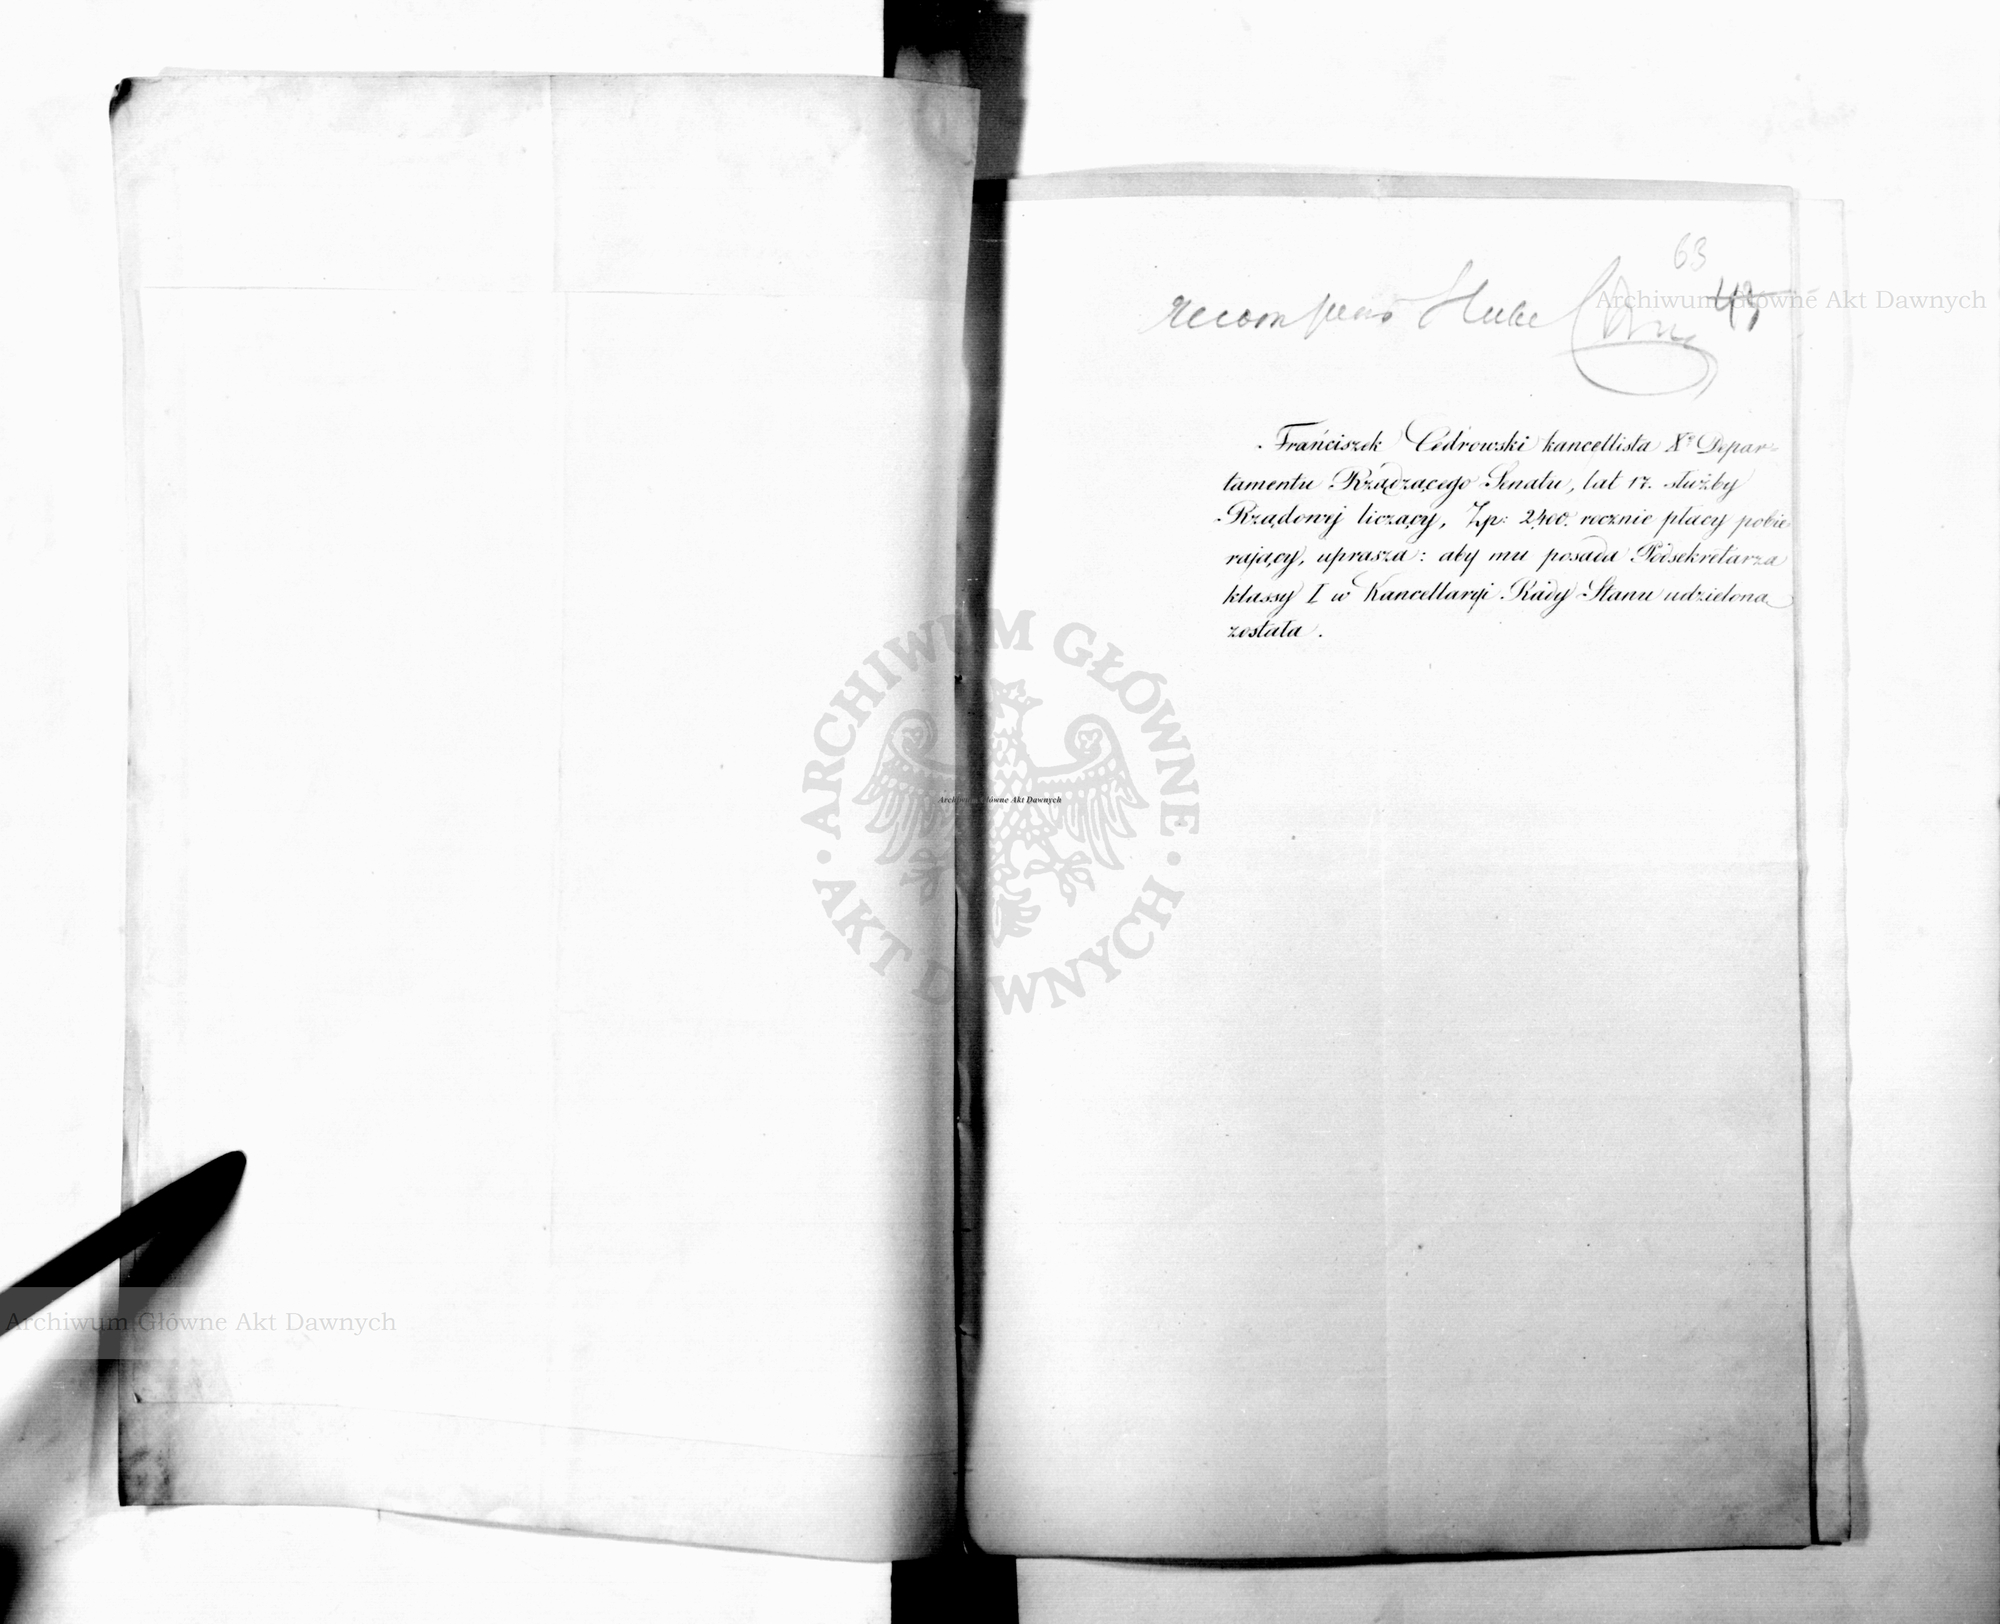 63
43
Archiwum Główne Akt Dawnych
Franciszek Cedrowski kancellista X° Depar-
tamentu Rządzącego Senatu, lat 17. służby
Rządowej liczący, Zp: 2,400. rocznie płacy pobie-
rający, uprasza: aby mu posada Podsekretarza
klassy I w Kancellaryi Rady Stanu udzielona
została.
ARCHIWUM GŁÓWNE
AKT DAWNYCH
Archiwum Główne Akt Dawnych
Archiwum Główne Akt Dawnych